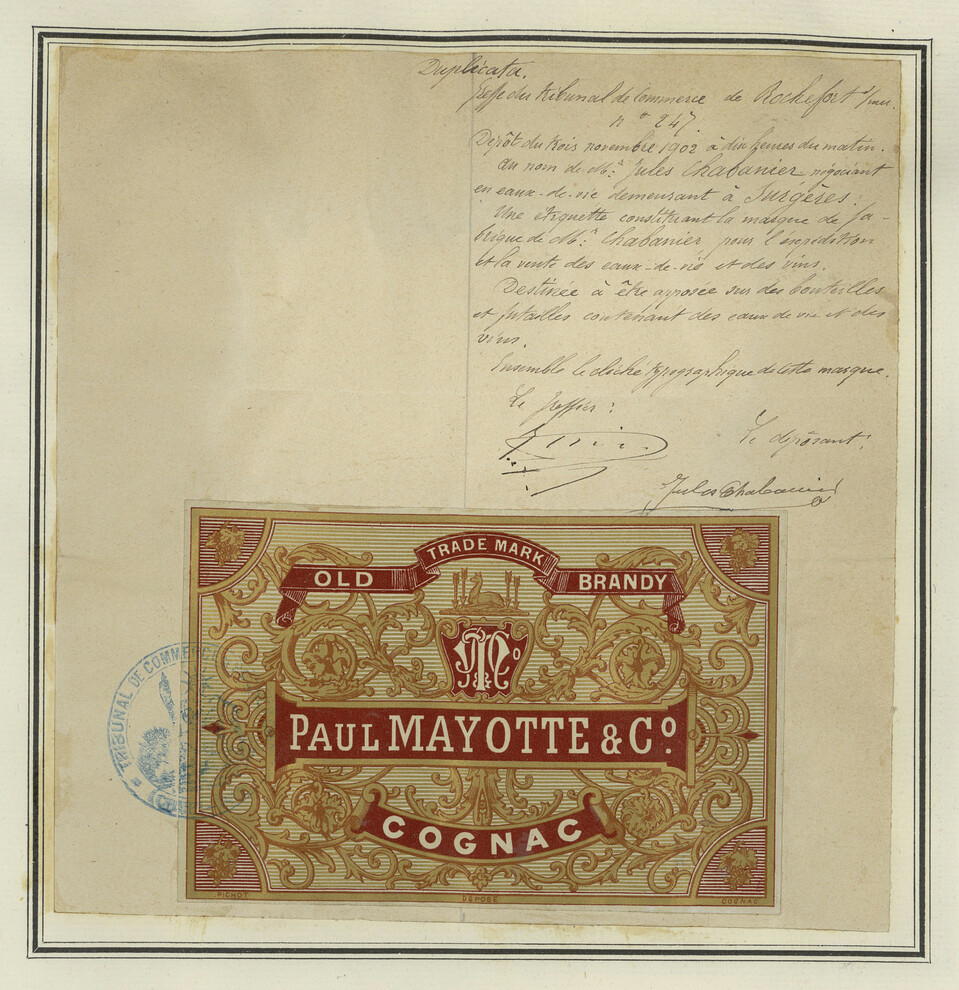 Duplicata.
Greffe du tribunal de Commerce de Rochefort s/mer.
n° 247.
Dépôt du trois novembre 1902 à dix heures du matin.
Au nom de Mr. Jules Chabanier négociant
en eaux-de-vie demeurant à Surgères.
Une étiquette constituant la marque de fa-
brique de Mr. Chabanier pour l'expédition
et la vente des eaux-de-vie et des vins.
Destinée à être apposée sur des bouteilles
et futailles contenant des eaux de vie et des
vins.
Ensemble le cliché typographique de cette marque.
Le greffier:
Le déposant:
Jules Chabanier
TRADE MARK
OLD BRANDY
PAUL MAYOTTE & Co.
COGNAC
TRIBUNAL DE COMMERCE
PICHOT DÉPOSÉ COGNAC